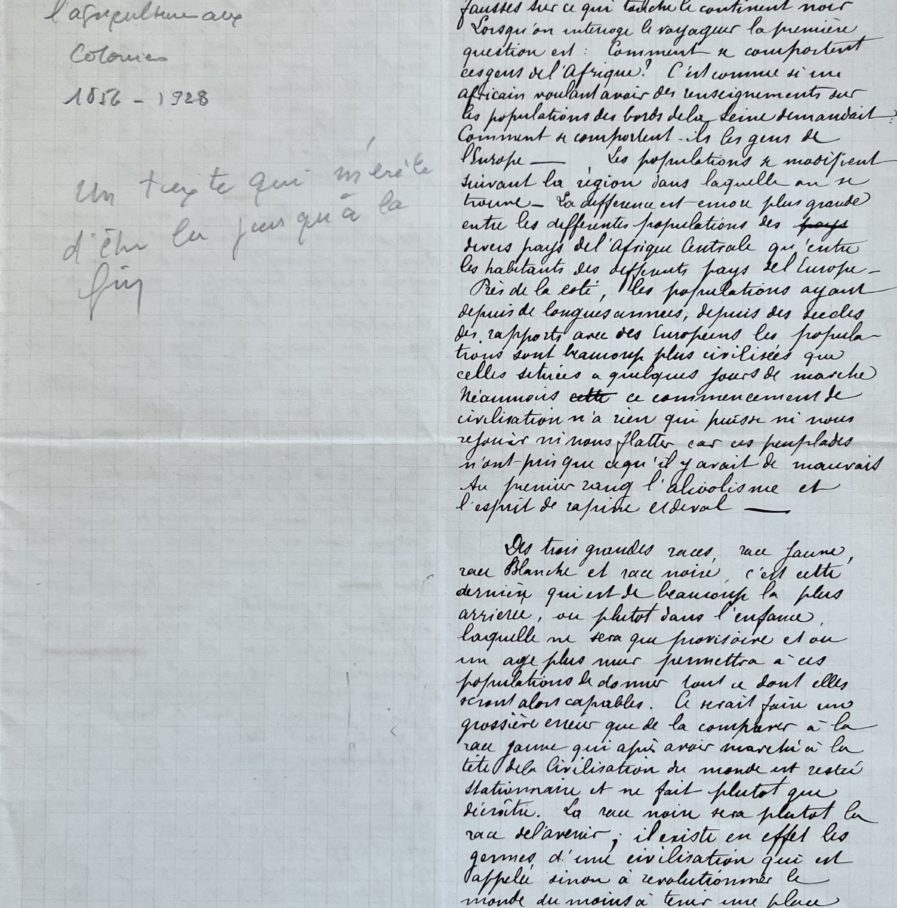 l'agriculture aux
Colonies
1856 - 1928
Un texte qui mérite
d'être lu jusqu'à la
fin
fausses sur ce qui touche le continent noir
Lorsqu'on interroge le voyageur la première
question est : Comment se comportent
ces gens de l'Afrique ? C'est comme si un
africain voulant avoir des renseignements sur
les populations des bords de la Seine demandait :
Comment se comportent-ils les gens de
l'Europe — Les populations se modifient
suivant la région dans laquelle on se
trouve - La difference est encore plus grande
entre les differentes populations des pays
divers pays de l'Afrique Centrale qu'entre
les habitants des differents pays de l'Europe -
Près de la cote, les populations ayant
depuis de longues années, depuis des siecles
des rapports avec des Européens les popula-
tions sont beaucoup plus civilisées que
celles situées a quelques jours de marche
Néanmoins cette ce commencement de
civilisation n'a rien qui puisse ni nous
rejouir ni nous flatter car ces peuplades
n'ont pris que ce qu'il y avait de mauvais
Au premier rang l'alcoolisme et
l'esprit de rapine et de vol —
Des trois grandes races, race jaune,
race Blanche et race noire, c'est cette
dernière qui est de beaucoup la plus
arrierée, ou plutot dans l'enfance,
laquelle ne sera que provisoire et ou
un age plus mur permettra à ces
populations de donner tout ce dont elles
seront alors capables. Ce serait faire une
grossière erreur que de la comparer à la
race jaune qui après avoir marché à la
tête de la Civilisation du monde est restée
stationnaire et ne fait plutot que
décroître. La race noire sera plutot la
race de l'avenir ; il existe en effet les
germes d'une civilisation qui est
appelée sinon à revolutionner le
monde du moins à tenir une place